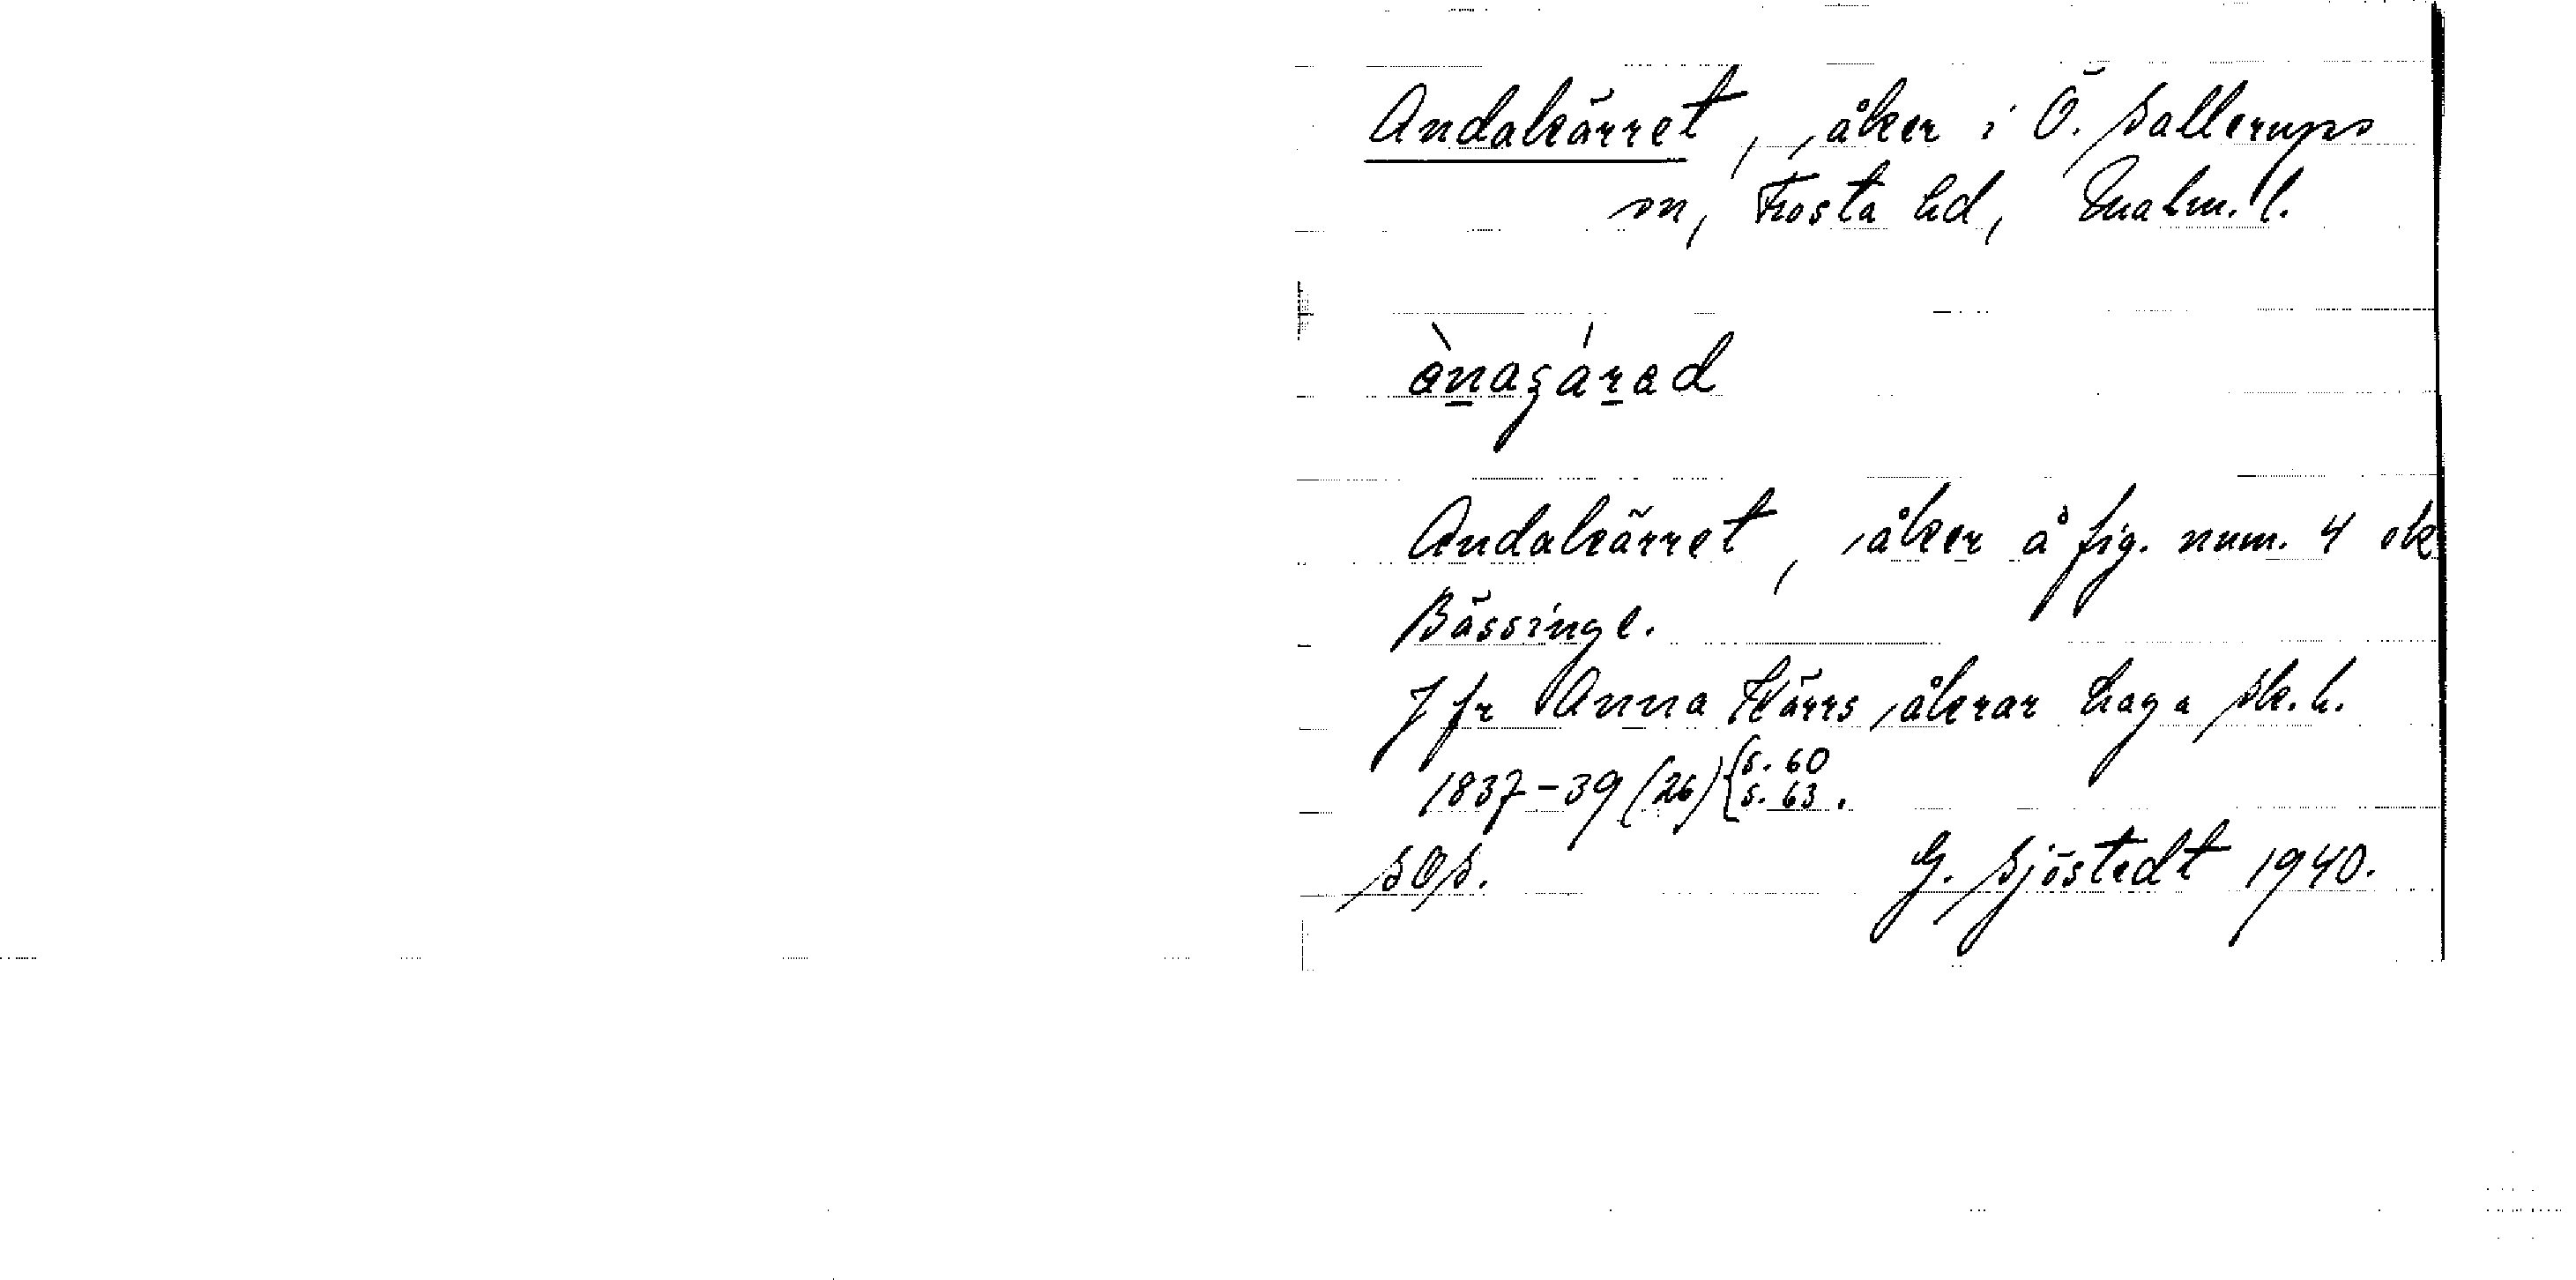 Andakärret, åker i Ö. Sallerups
sn, Frosta hd, Malm. l.
ànagárad
Andakärret, åker å fig. num. 4 sk
Bässinge.
Jfr Anna Kärrs åkrar Laga sk. h.
1837-39 (26) {s. 60
s. 63.
SOS. G. Sjöstedt 1940.